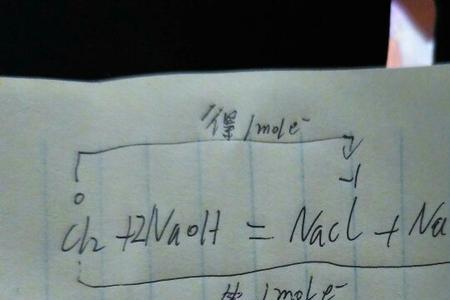 得 1mole⁻
0
-1
Cl₂+2NaOH = NaCl + Na
1mole